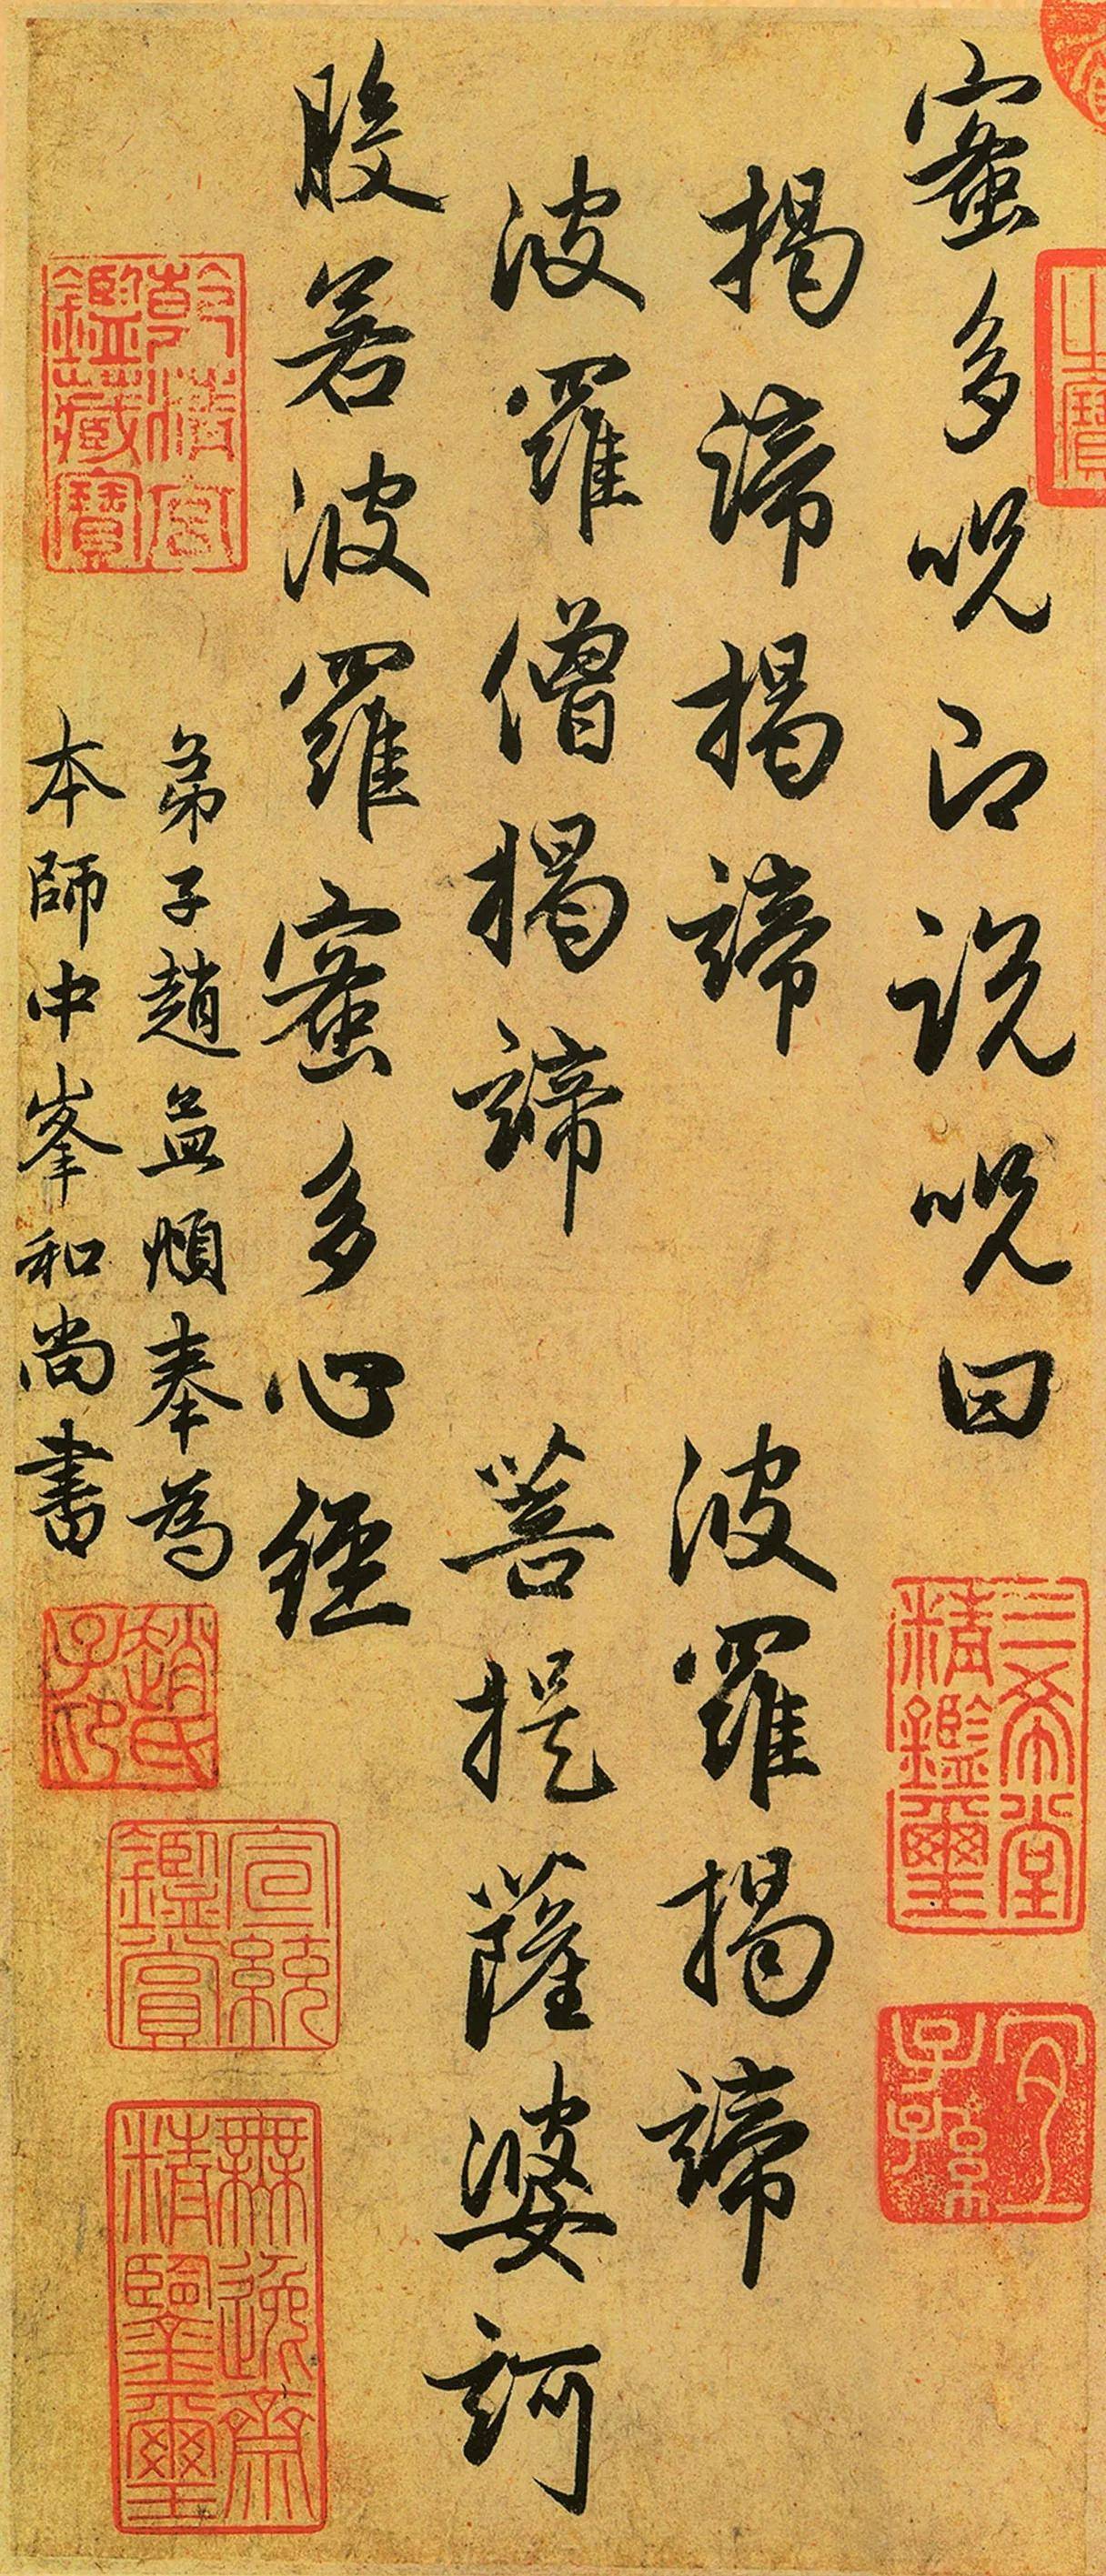 蜜多呪即說呪曰
揭諦揭諦 波羅揭諦
波羅僧揭諦 菩提薩婆訶
般若波羅蜜多心經
弟子趙孟頫奉為
本師中峯和尚書
之寶
三希堂精鑑璽
宜子孫
乾清宮鑑藏寶
趙氏子昂
宣統鑑賞
無逸齋精鑑璽